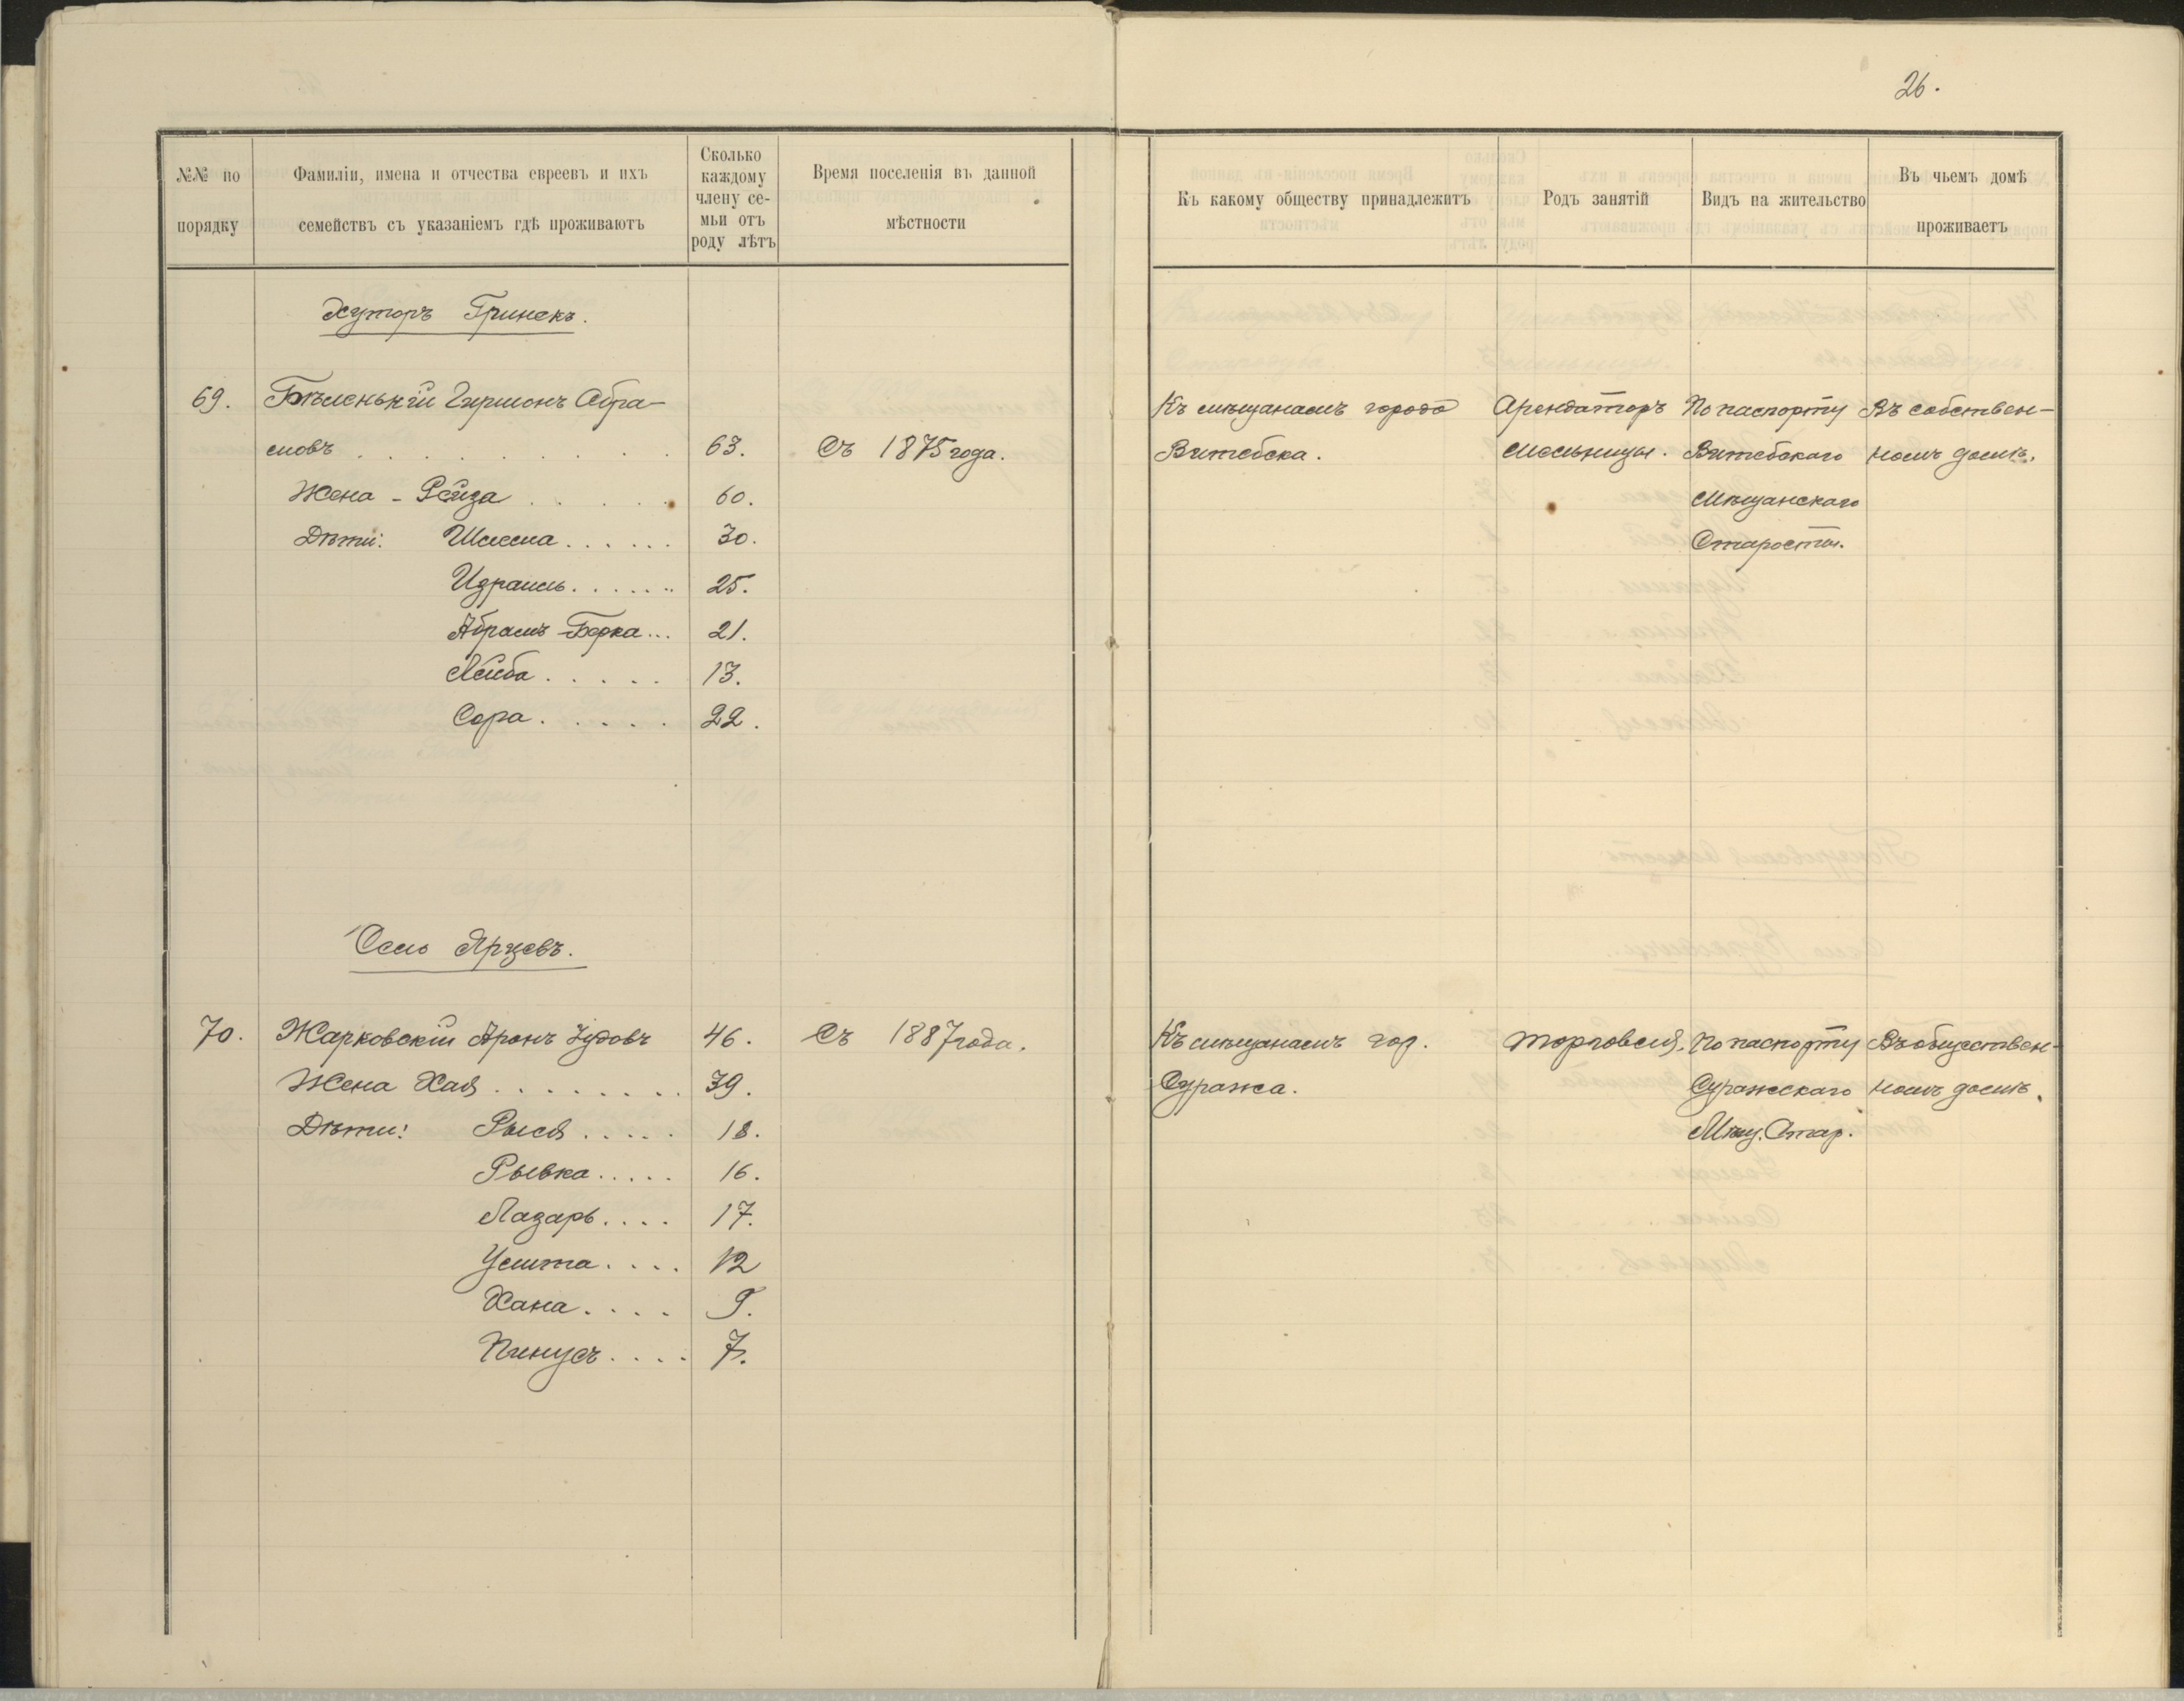 26.
№№ по порядку
Фамиліи, имена и отчества евреевъ и ихъ семействъ съ указаніемъ гдѣ проживаютъ
Сколько каждому члену семьи отъ роду лѣтъ
Время поселенія въ данной мѣстности
Къ какому обществу принадлежитъ
Родъ занятій
Видъ на жительство
Въ чьемъ домѣ проживаетъ
Хуторъ Гринекъ.
69. Бѣленькій Гиршонъ Абра- Къ мѣщанамъ города Арендаторъ По паспорту Въ собствен-
мовъ 63. Съ 1875 года. Витебска. мельницы. Витебскаго номъ домѣ.
Жена - Рейза 60. Мѣщанскаго
Дѣти: 30. Старосты.
Израиль 25.
Абрамъ-Берка 21.
Лейба 13.
Сора 22.
Село Ярцевъ.
70. Жарковскій Аронъ Іудовъ 46. Съ 1887 года. Къ мѣщанамъ гор. Торговля. По паспорту Въ обществен-
Жена Хая 39. Суража. Суражскаго номъ домѣ.
Дѣти: Рыся 18. Мѣщ. Стар.
Рывка 16.
Лазарь 17.
12
Хана 9.
Пинусъ 7.